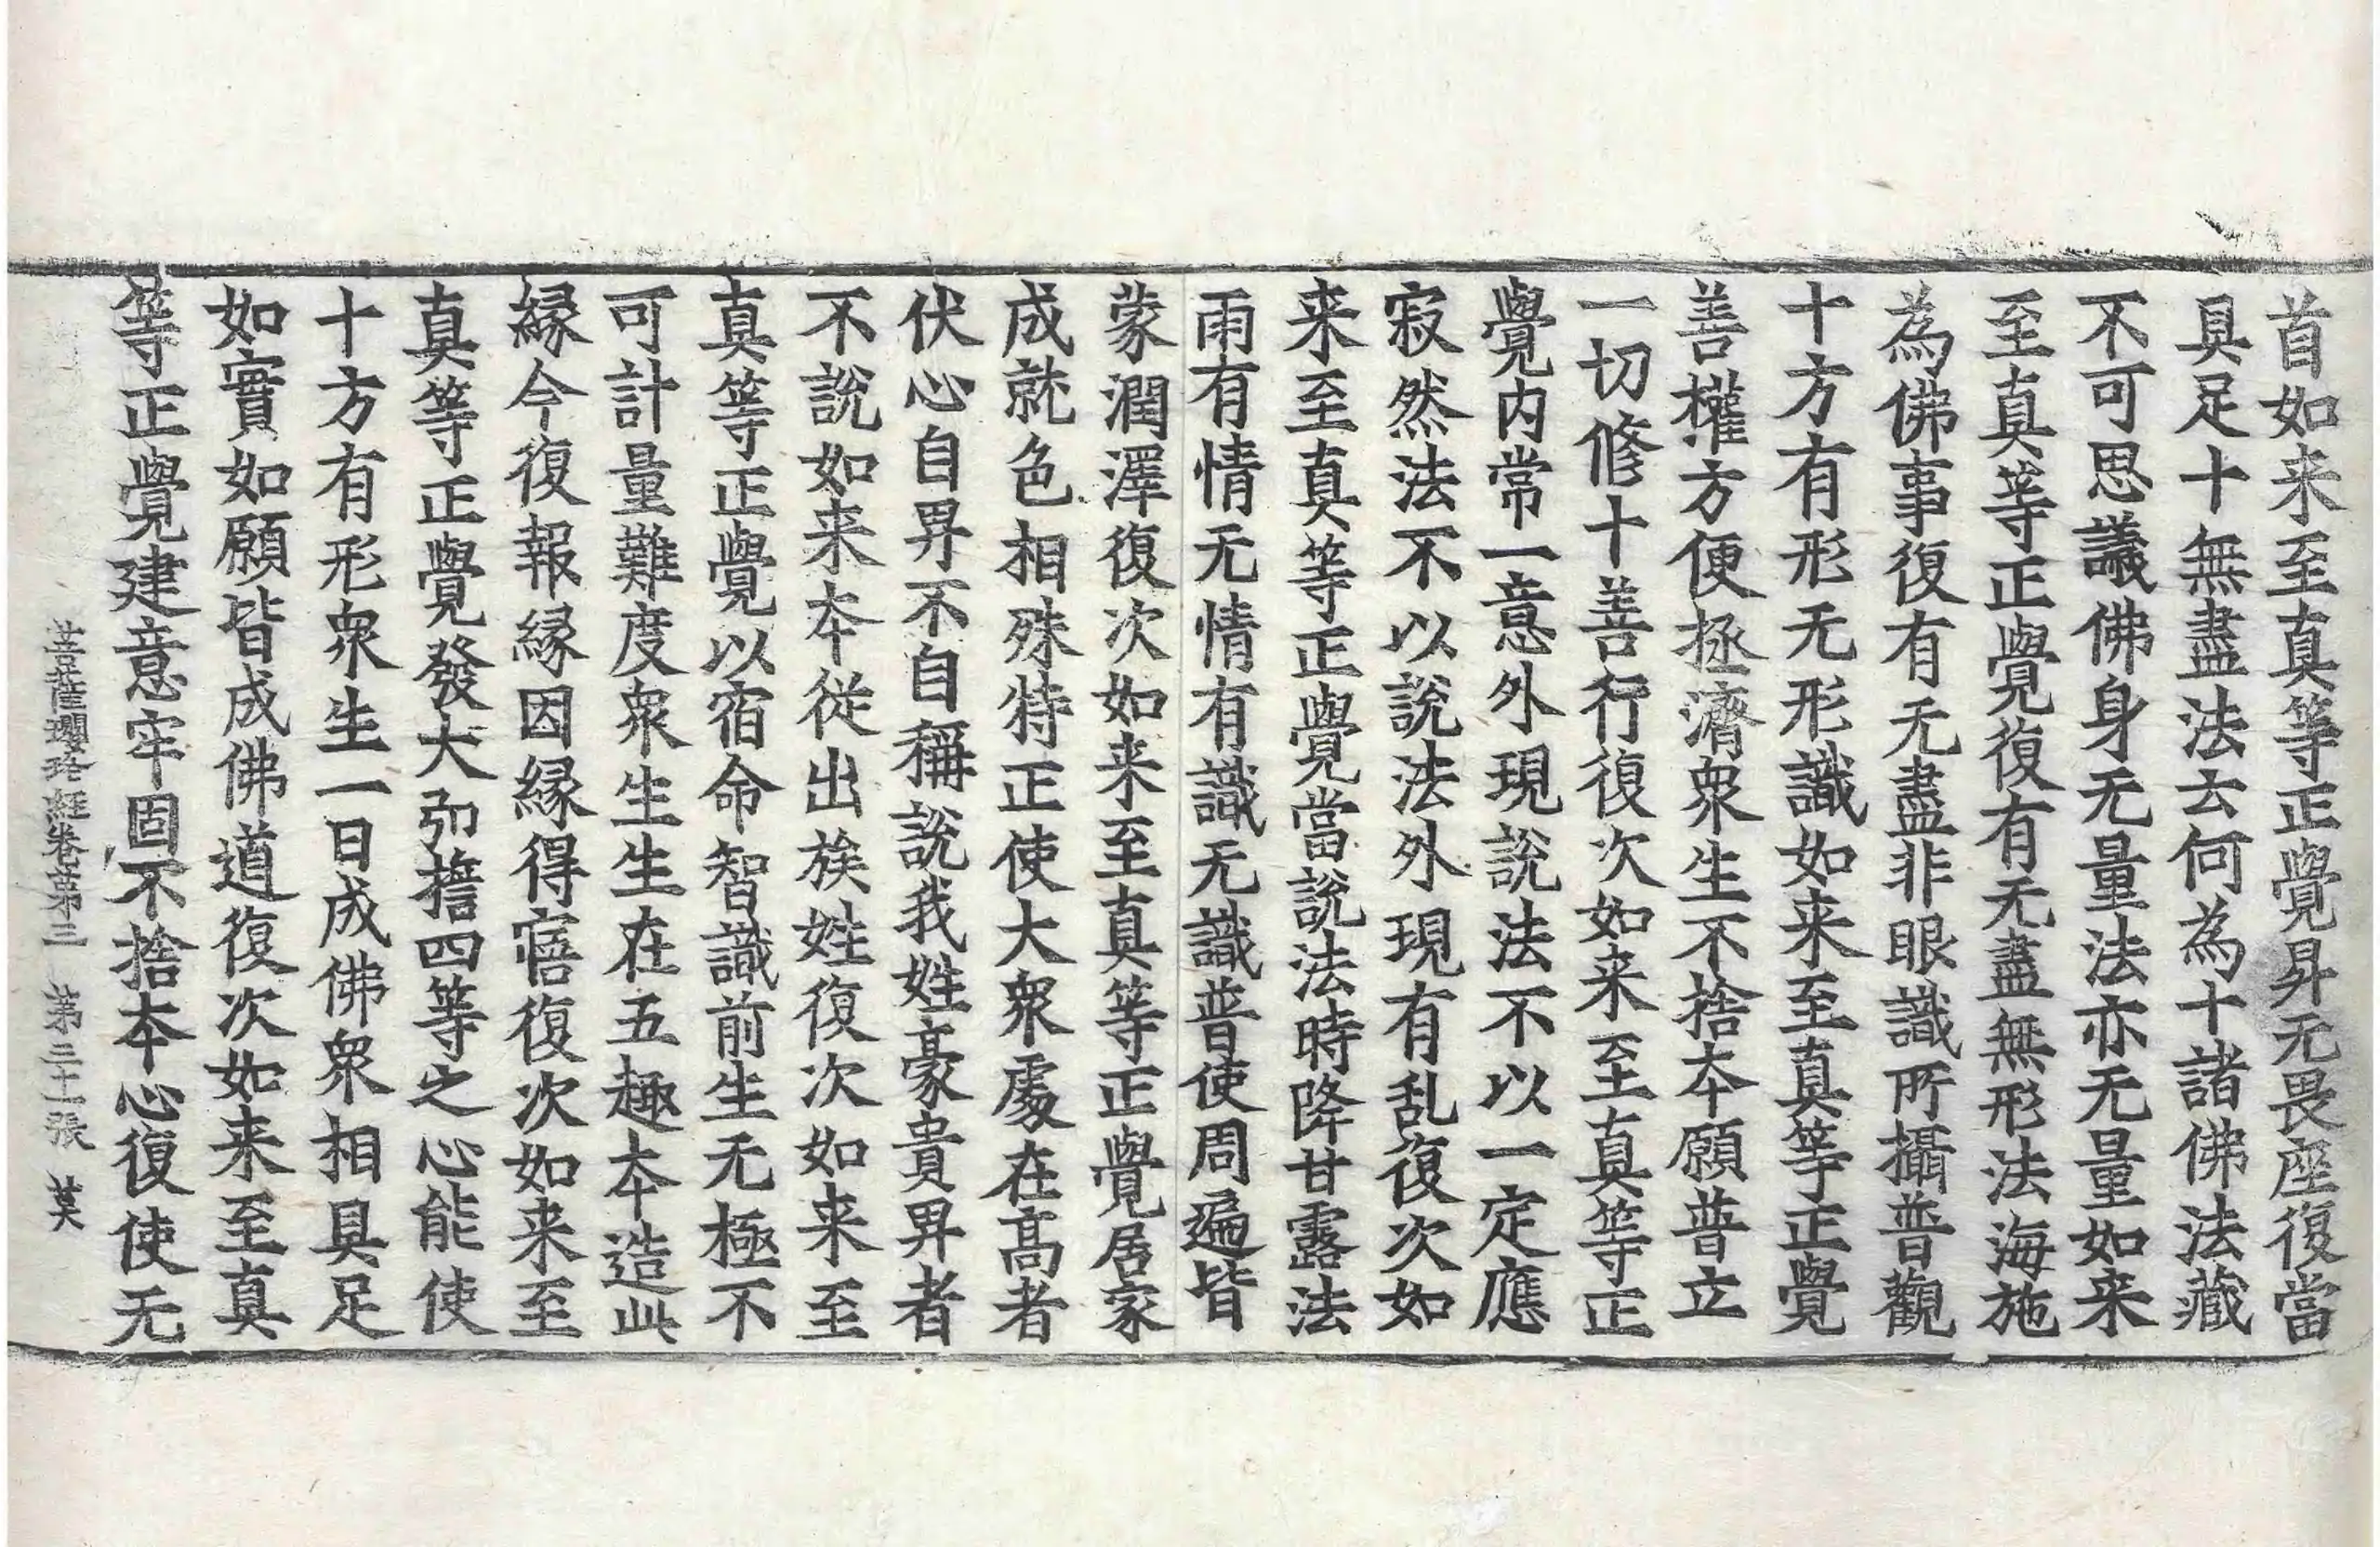 首如来至真等正覺昇无畏座復當
具足十無盡法云何為十諸佛法藏
不可思議佛身无量法亦无量如来
至真等正覺復有无盡無形法海施
為佛事復有无盡非眼識所攝普觀
十方有形无形識如来至真等正覺
善權方便拯濟衆生不捨本願普立
一切修十善行復次如来至真等正
覺內常一意外現說法不以一定應
寂然法不以說法外現有乱復次如
来至真等正覺當說法時降甘露法
雨有情无情有識无識普使周遍皆
蒙潤澤復次如来至真等正覺居家
成就色相殊特正使大衆處在高者
伏心自畀不自稱說我姓豪貴畀者
不說如来本從出族姓復次如来至
真等正覺以宿命智識前生无極不
可計量難度衆生生在五趣本造此
緣今復報緣因緣得寤復次如来至
真等正覺發大弘擔四等之心能使
十方有形衆生一日成佛衆相具足
如實如願皆成佛道復次如来至真
等正覺建意牢固不捨本心復使无
菩薩瓔珞經卷第三 第三十張 莫